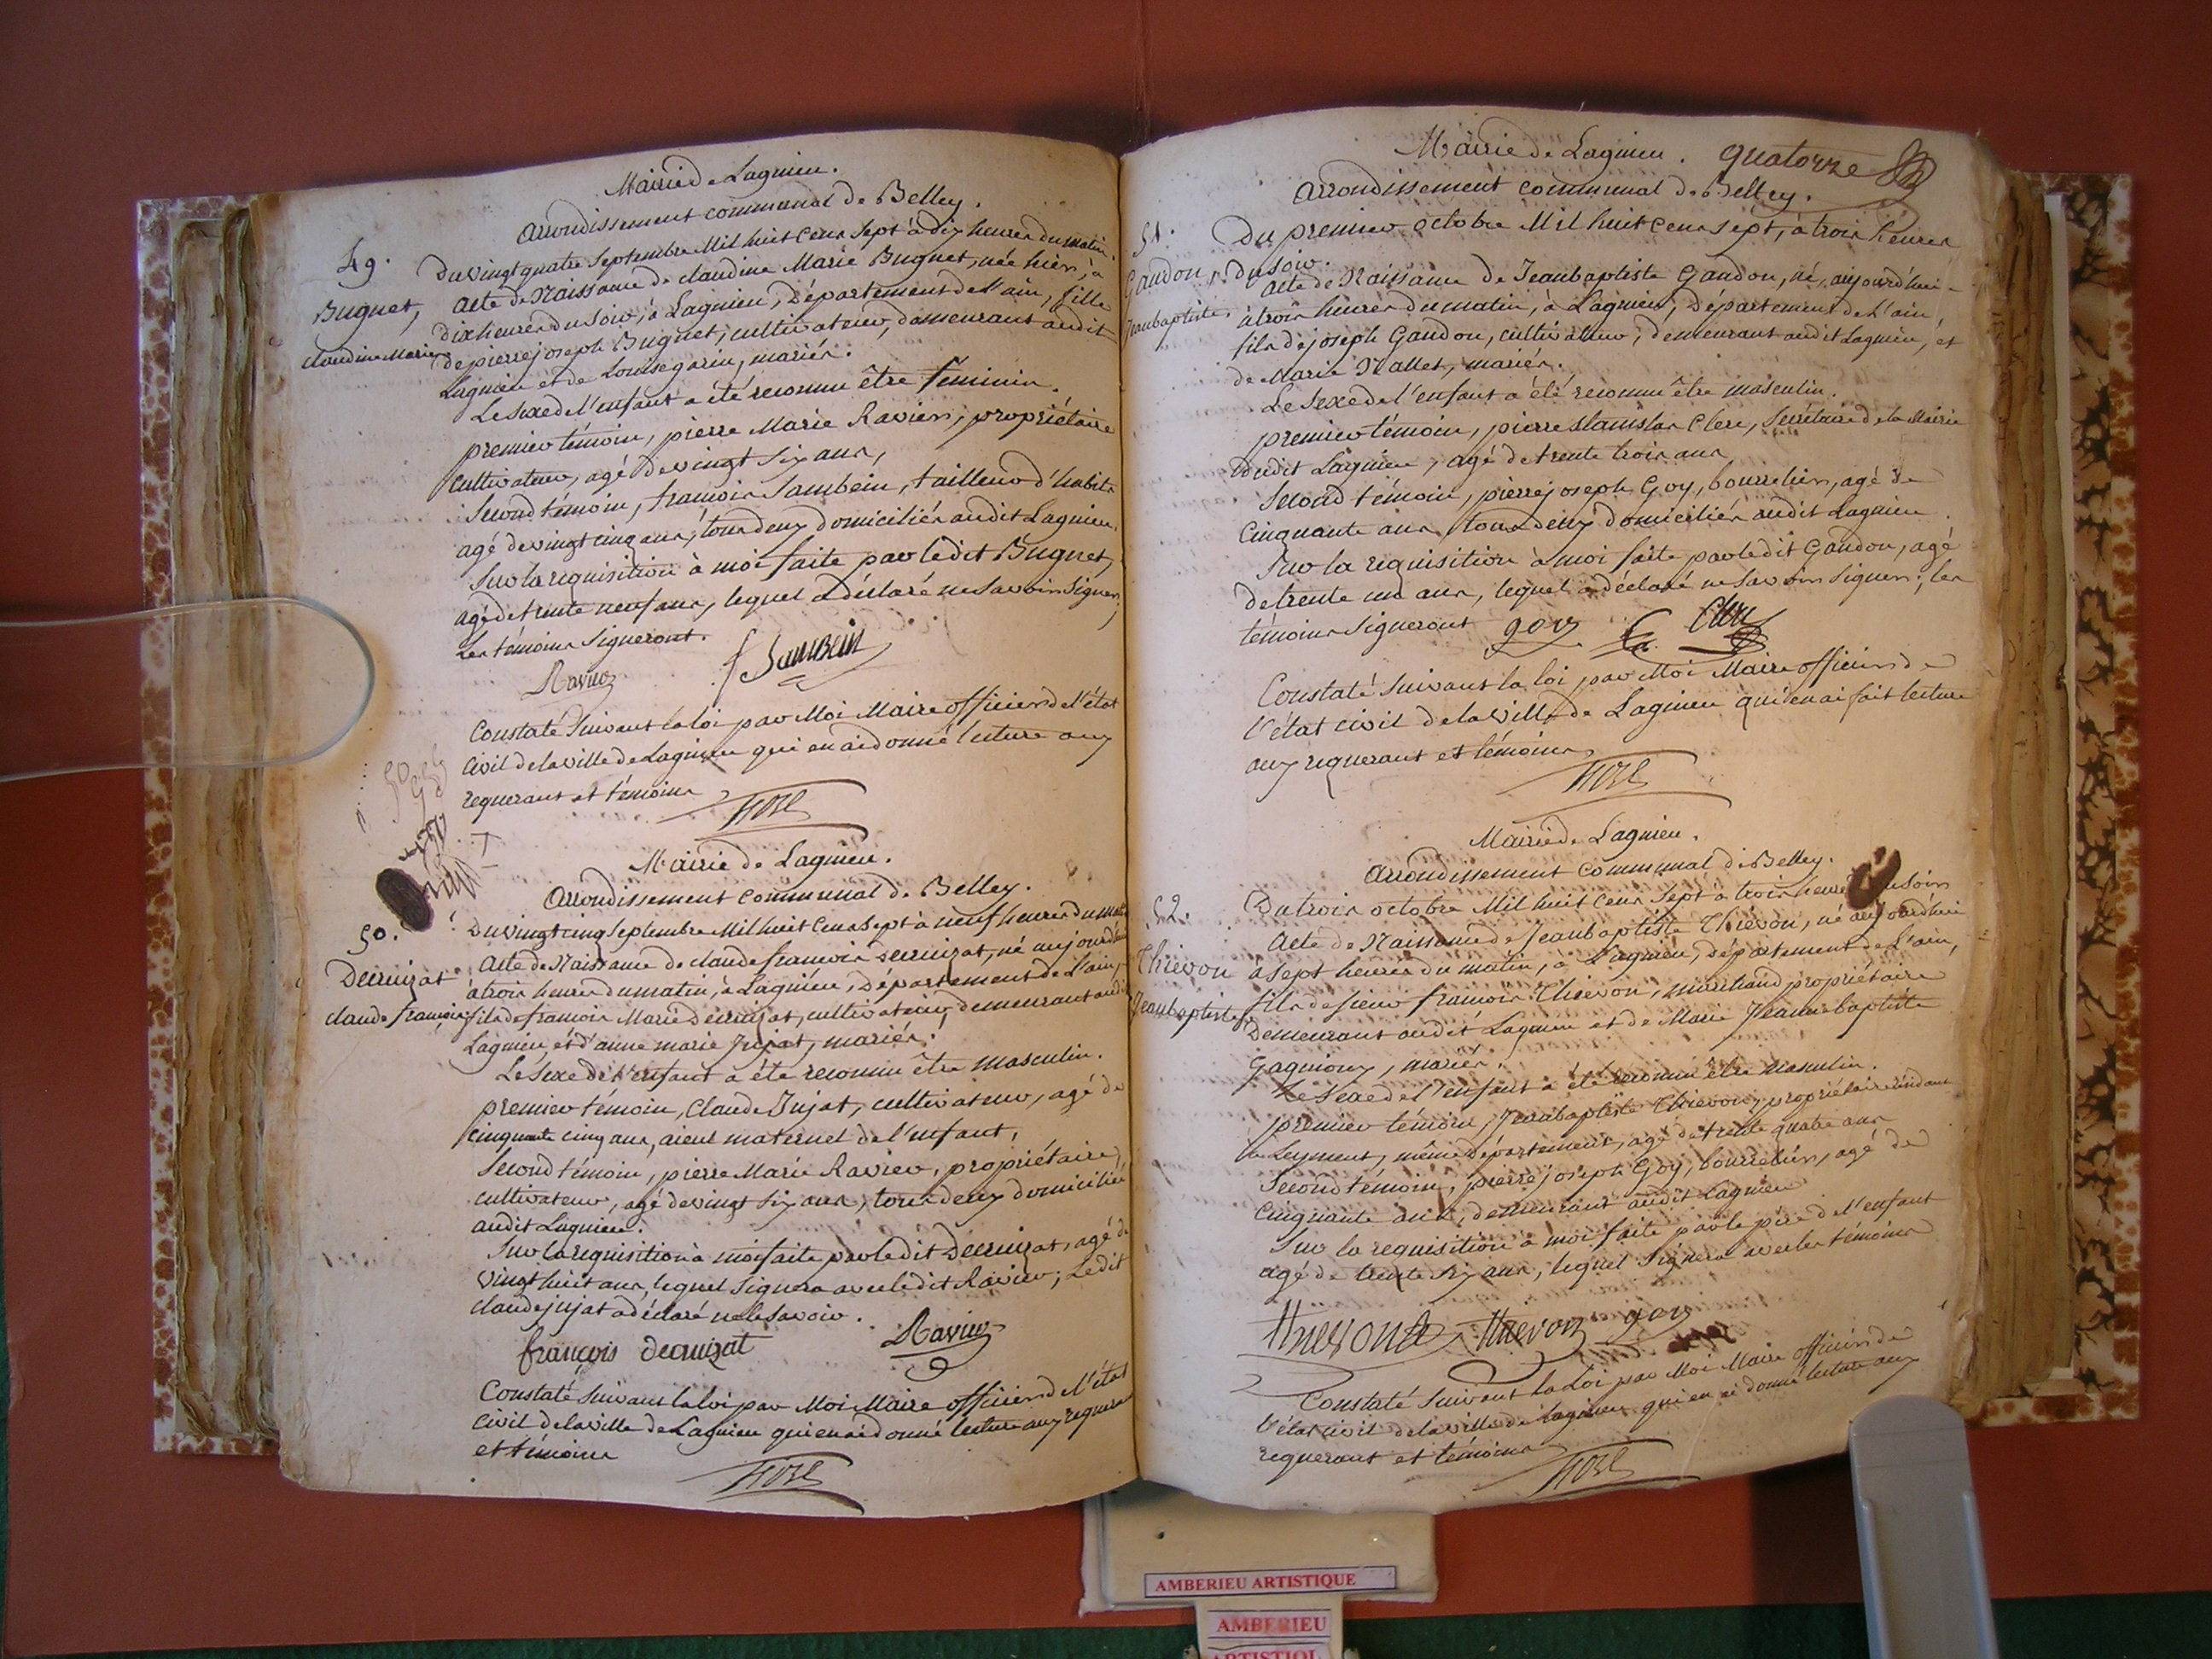 Mairie de Lagnieu.
arrondissement communal de Belley.
49.
Buguet,
claudine Marie
Du vingt quatre Septembre Mil huit Cens Sept à dix heures du matin.
acte de Naissance de claudine Marie Buguet, née hier, à
dix heures du soir, à Lagnieu, Département de l'ain, fille
de pierre joseph Buguet, cultivateur, demeurant audit
Lagnieu et de Louise garin, mariés.
Le Sexe de l'enfant a été reconnu être feminin.
premier témoin, pierre Marie Ravier, propriétaire
cultivateur, agé de vingt six ans,
Second témoin, françois Sambein, tailleur d'habits
agé de vingt cinq ans, tous deux domiciliés audit Lagnieu.
Sur la requisition à moi faite par ledit Buguet,
agé de trente neuf ans, lequel a déclaré ne savoir signer,
Les témoins Signeront.
Ravier
f Sambein
Constaté Suivant la loi par Moi Maire officier de l'état
civil de la ville de Lagnieu qui en ai donné lecture aux
requerant et témoins
Mairie de Lagnieu.
arrondissement communal de Belley.
50.
Decruizat
claude françois
Du vingt cinq Septembre Mil huit Cens Sept à neuf heures du matin
Acte de Naissance de claude françois decruizat, né aujourd'hui
à trois heures du matin, à Lagnieu, Département de l'ain,
fils de françois Marie decruizat, cultivateur, demeurant audit
Lagnieu, et d'anne marie Jujat, mariés.
Le Sexe de l'enfant a été reconnu être masculin.
premier témoin, Claude Jujat, cultivateur, agé de
cinquante cinq ans, aieul maternel de l'enfant,
Second témoin, pierre Marie Ravier, propriétaire,
cultivateur, agé de vingt six ans, tous deux domiciliés
audit Lagnieu.
Sur la requisition à moi faite par ledit Decruizat, agé de
vingt huit ans, lequel signera avec ledit Ravier; Ledit
claude jujat a déclaré ne le savoir.
françois decruizat
Ravier
Constaté Suivant la loi par Moi Maire officier de l'état
civil de la ville de Lagnieu qui en ai donné lecture aux requerant
et témoins
Mairie de Lagnieu. quatorze
arrondissement communal de Belley.
51.
Gandon,
Jeanbaptiste
Du premier octobre Mil huit Cens Sept, à trois heures
du soir.
acte de Naissance de Jeanbaptiste Gandon, né, aujourd'hui
à trois heures du matin, à Lagnieu, Département de l'ain,
fils de joseph Gandon, cultivateur, demeurant audit Lagnieu, et
de Marie Nallet, mariés.
Le Sexe de l'enfant a été reconnu être masculin.
premier témoin, pierre stanislas Clerc, Secrétaire de la Mairie
dudit Lagnieu, agé de trente trois ans
Second témoin, pierre joseph Goy, bourrelier, agé de
cinquante ans, tous deux domiciliés audit Lagnieu.
Sur la requisition à moi faite par ledit Gandon, agé
de trente un ans, lequel a déclaré ne savoir signer; les
témoins signeront goy Clerc
Constaté Suivant la loi par Moi Maire officier de
l'état civil de la ville de Lagnieu qui en ai fait lecture
aux requerant et témoins
Mairie de Lagnieu.
arrondissement communal de Belley.
52.
Thievon
Jeanbaptiste
Du trois octobre Mil huit Cens Sept à trois heures du soir
Acte de Naissance de Jeanbaptiste Thievon, né aujourd'hui
à sept heures du matin, à Lagnieu, département de l'ain,
fils de sieur françois Thievon, marchand propriétaire
demeurant audit Lagnieu et de Marie Jeannebaptiste
Gagnioux, mariés.
Le Sexe de l'enfant a été reconnu être masculin.
premier témoin, Jeanbaptiste Thievon, propriétaire résidant
à Leyment, même département, agé de trente quatre ans
Second témoin, pierre joseph Goy, bourrelier, agé de
cinquante ans, demeurant audit Lagnieu
Sur la requisition à moi faite par le père de l'enfant
agé de trente six ans, lequel signera avec les témoins
thievon goy
Constaté Suivant la Loi par Moi Maire officier de
l'état civil de la ville de Lagnieu qui en ai donné lecture aux
requerant et témoins
AMBERIEU ARTISTIQUE
AMBERIEU
ARTISTIQUE